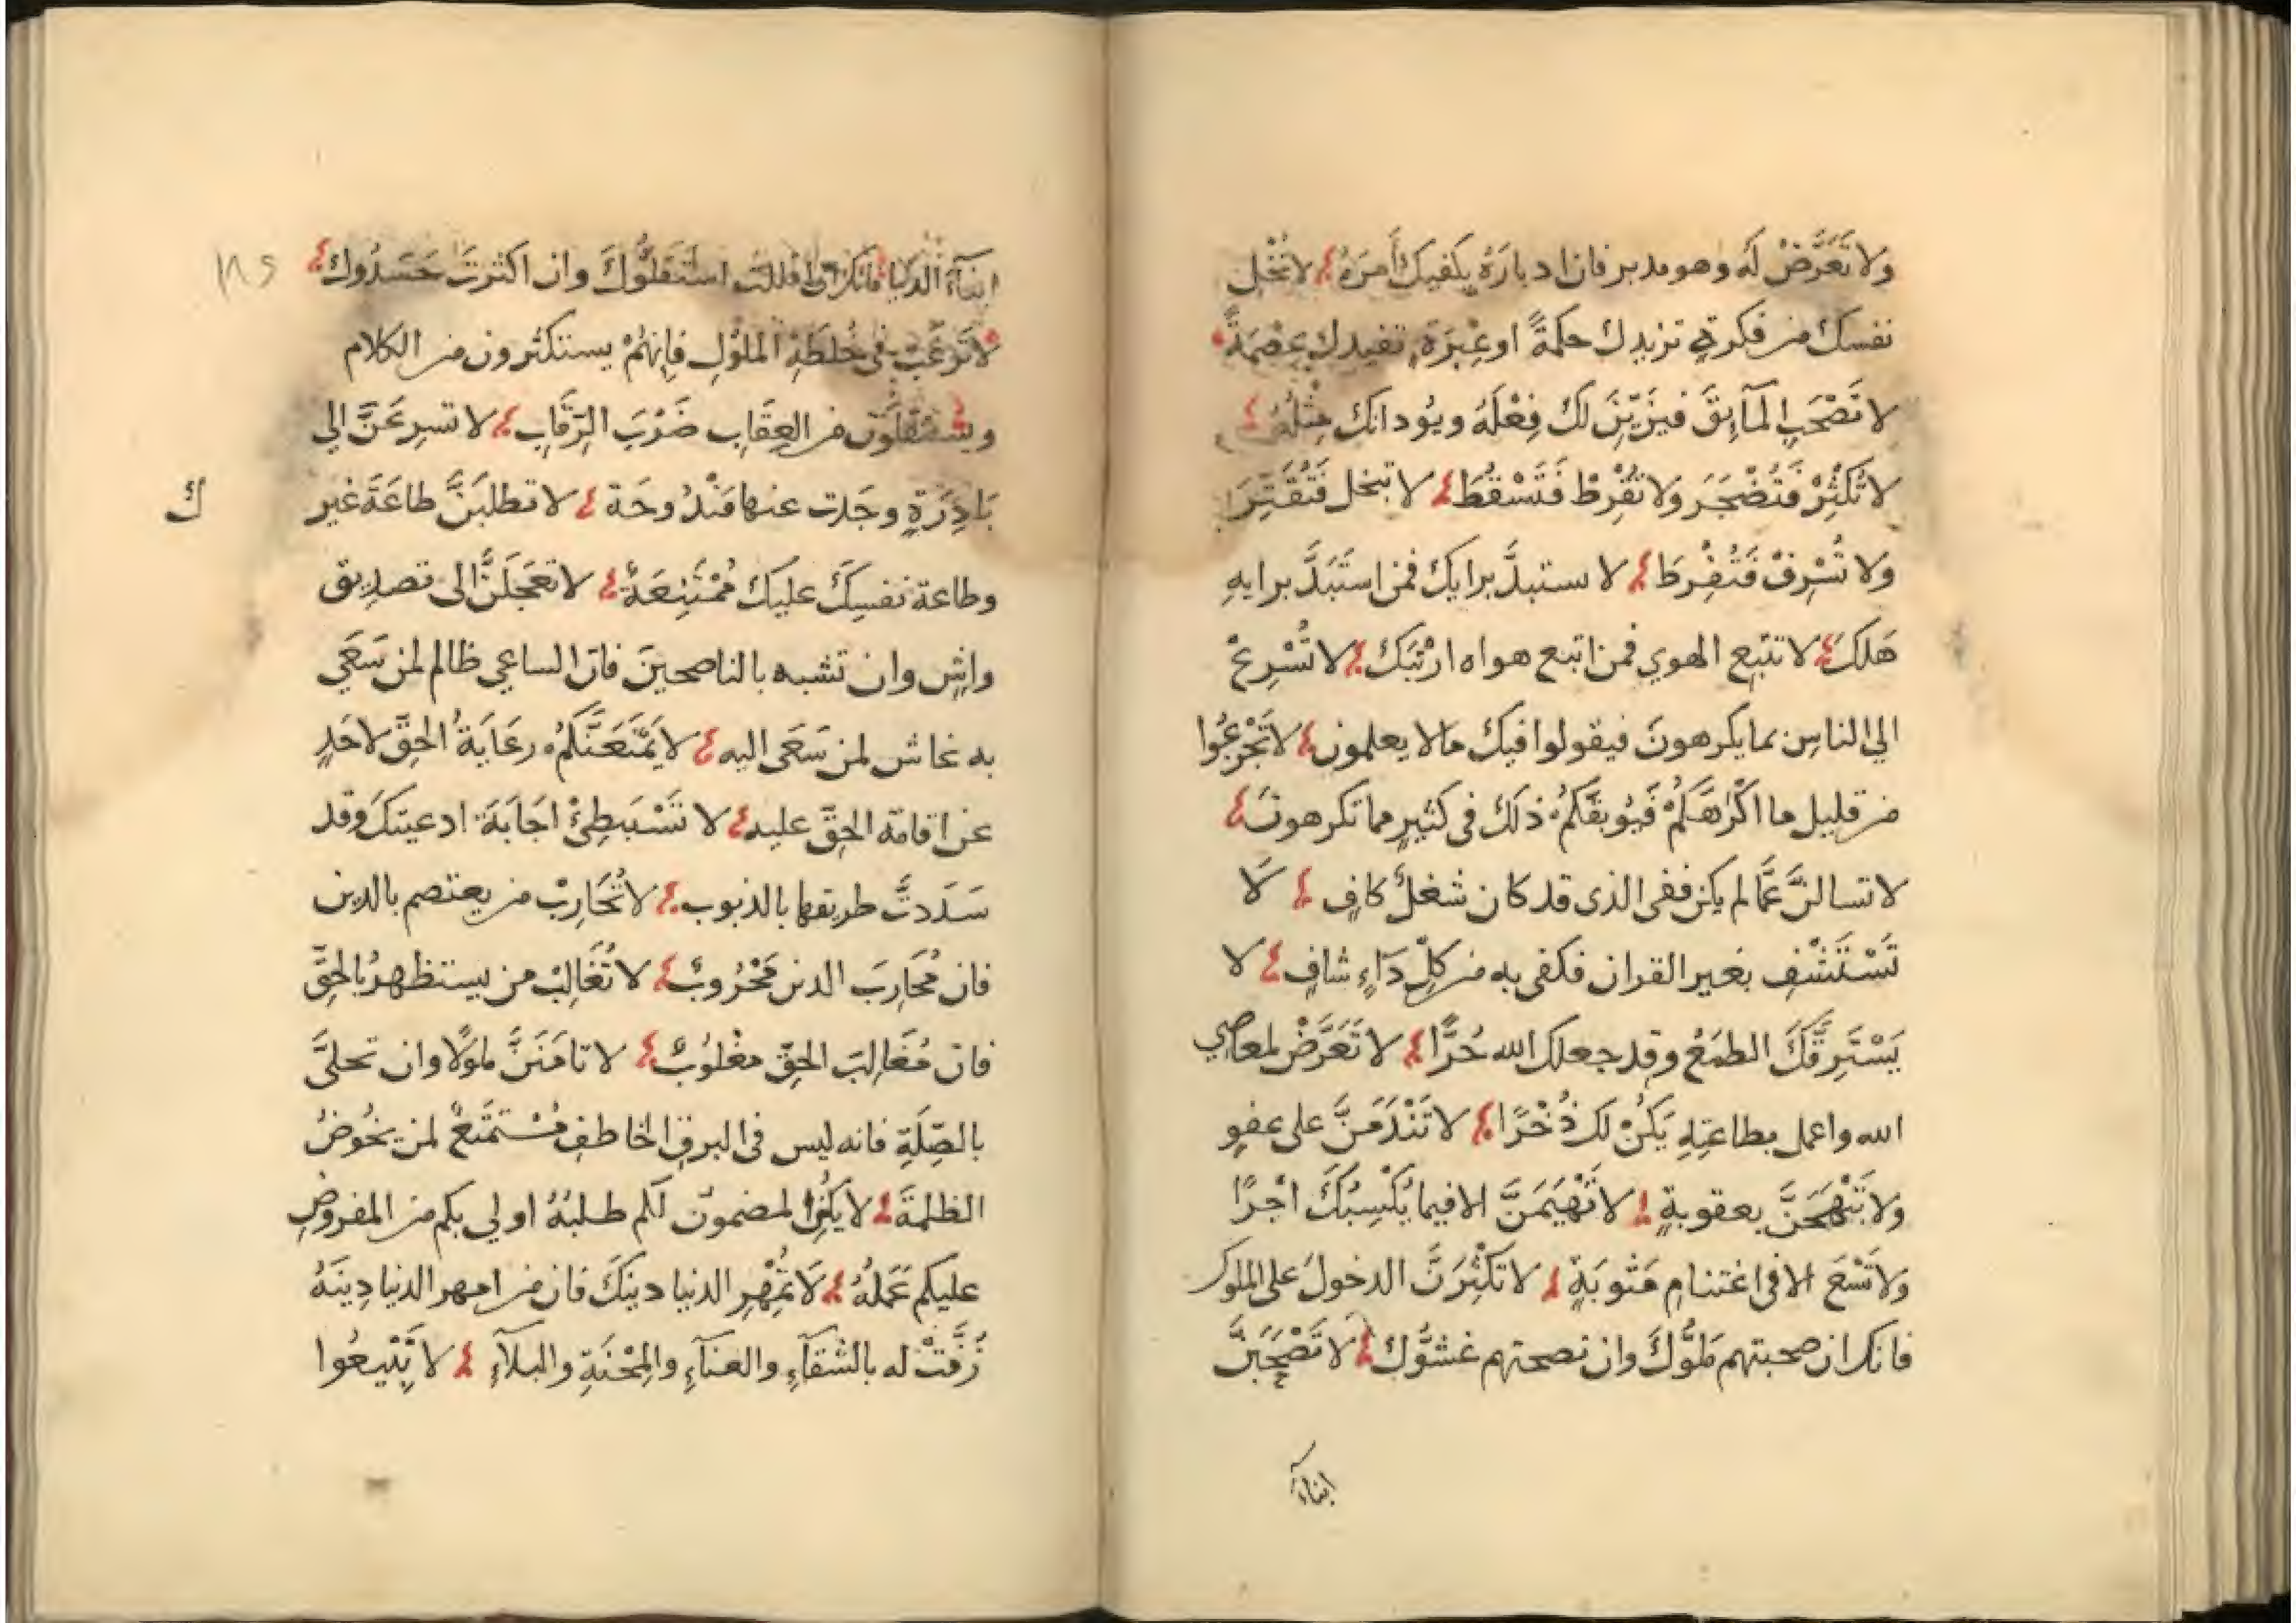 ولا تَعَرَّضْ لَهُ وهو مدبر فان ادبارَهُ يكفيك أَمرَهُ لا تُخْلِ
نفسَك من فكرةٍ تزيدك حكمةً او عِبْرَةٍ تفيدك عِصْمَةً
لا تَصْحَبِ المآئِقَ فيَزَيِّنَ لك فِعْلَهُ ويوُد انك مِثْلُهُ
لا تُكْثِرْ فَتُضْجَرَ ولا تُفْرِطْ فَتَسْقُطَ لا تبخل فَتُقَتِّرَ
ولا تُسْرِفْ فَتُفْرِطَ لا ستبدَّ برايك فمن استَبَدَّ برايهِ
هَلكَ لا تتبِع الهوي فمن اتبع هواه ارْتَبَكَ لا تُسْرِعْ
الي الناسِ بما يكرهونَ فيقولوا فيك ما لا يعلمون لا تَجْزَعُوا
من قليل ما اكْرَهَكُمْ فَيُوبِقَكُمْ ذلك في كثيرٍ مما تكرهونَ
لا تسالنَّ عمَّا لم يكن ففي الذى قد كان شغلٌ كافٍ لَا
تَسْتَشْفِ بغير القران فكفى به من كلِّ دَاءٍ شافٍ لا
يَسْتَرِقَّكَ الطمَعُ وقد جعلك الله حُرًّا لا تَعَرَّضْ لمعاصي
الله واعمل بطاعتِهِ يَكُنْ لك ذُخْرًا لا تَنْدَمَنَّ على عفوٍ
ولا تَبْهَجَنَّ بعقوبةٍ لا تَهْيَمَنَّ الا فيما يُكْسِبُكَ اجْرًا
ولا تَسْعَ الا فى اغتنامِ مَثوبَةٍ لا تكْثِرَنَّ الدخولَ على الملوك
فانك ان صحبتهم مَلوُّكَ وان نصحتهم غشوُّك لا تَصْحَبَنَّ
ابناءَ
ابناءَ الدنيا فانك ان اقللتَ استَقلُّوكَ وان اكثرتَ حَسَدُوك
١٨٥
لا تَرغَبْ فى خُلطَةِ الملوْكِ فإنهُمْ يستكثرون من الكلام
ويستقلُّون من العِقَابِ ضَرْبَ الرِّقَابِ لا تسرِعَنَّ الي
بَادِرَةٍ وجَدت عنها مَنْدُوحَة لا تطلبَنَّ طاعَةَ غيرِ
ك
وطاعة نفسِكَ عليك مُمْتَنِعَةٌ لا تعجَلَنَّ الى تصديق
واشٍ وان تشبه بالناصحينَ فانّ الساعي ظالم لمن سَعَي
به غاش لمن سَعَى اليه لا يَمْنَعَنَّكُمْ رعَايَةُ الحقِّ لاحَدٍ
عن اقامة الحقّ عليه لا تَسْتَبطِئْ اجَابَةَ ادعيتكَ وقد
سَدَدتَّ طريقها بالذنوب لا تُحَارِبْ من يعتصم بالدين
فان مُحَارِبَ الدين مَحْرُوبٌ لا تُغَالِبْ من يستظهرُ بالحقِّ
فان مُغَالِبَ الحقّ مغْلُوبٌ لا تامَنَنَّ ملوَلًا وان تحلىَّ
بالصِّلَةِ فانه ليس فى البرقِ الخاطفِ مُسْتمتَعٌ لمن يخُوضُ
الظلمةَ لا يكُنِ المضمون لكم طلبُهُ اولي بكم من المفروضِ
عليكم عَمَلُهُ لَا تُمْهِرِ الدنيا دينكَ فان من امهر الدنيا دِينَهُ
زُفَّتْ له بالشقآءِ والعنآءِ والمِحْنَةِ والبلآءِ لا تَّتْبِعُوا